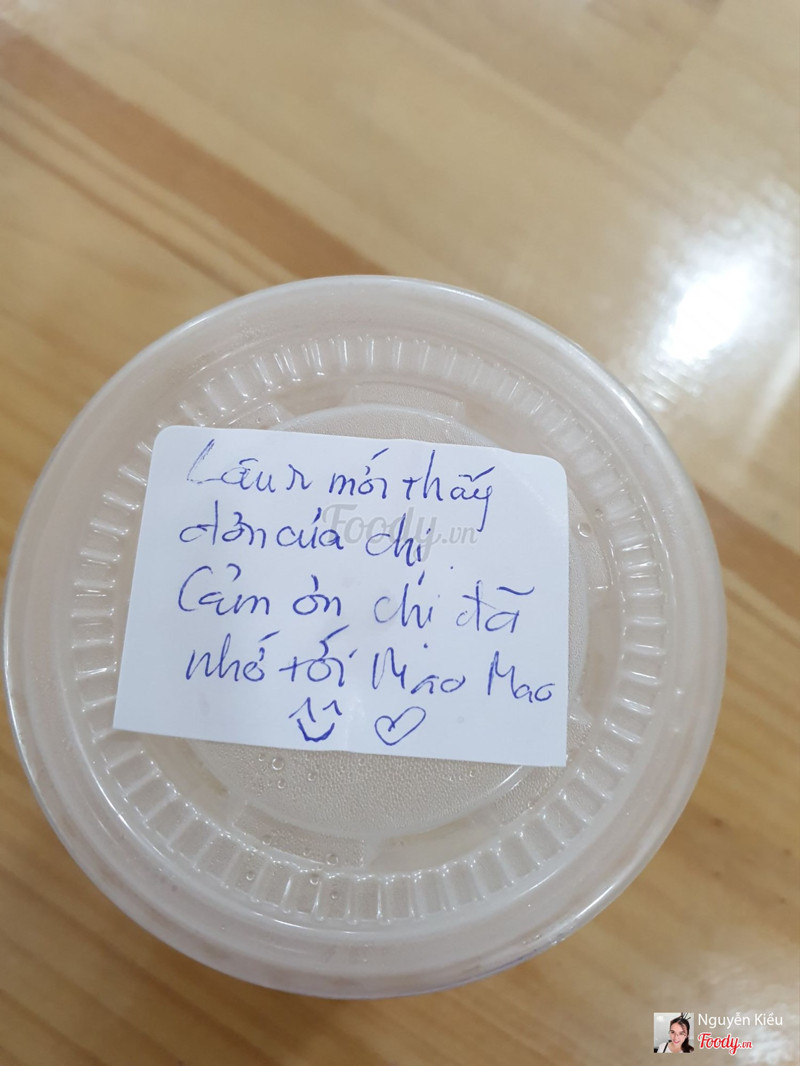 Lâu r mới thấy
đơn của chị
Cảm ơn chị đã
nhớ tới Mao Mao
Foody.vn
Nguyễn Kiều
Foody.vn